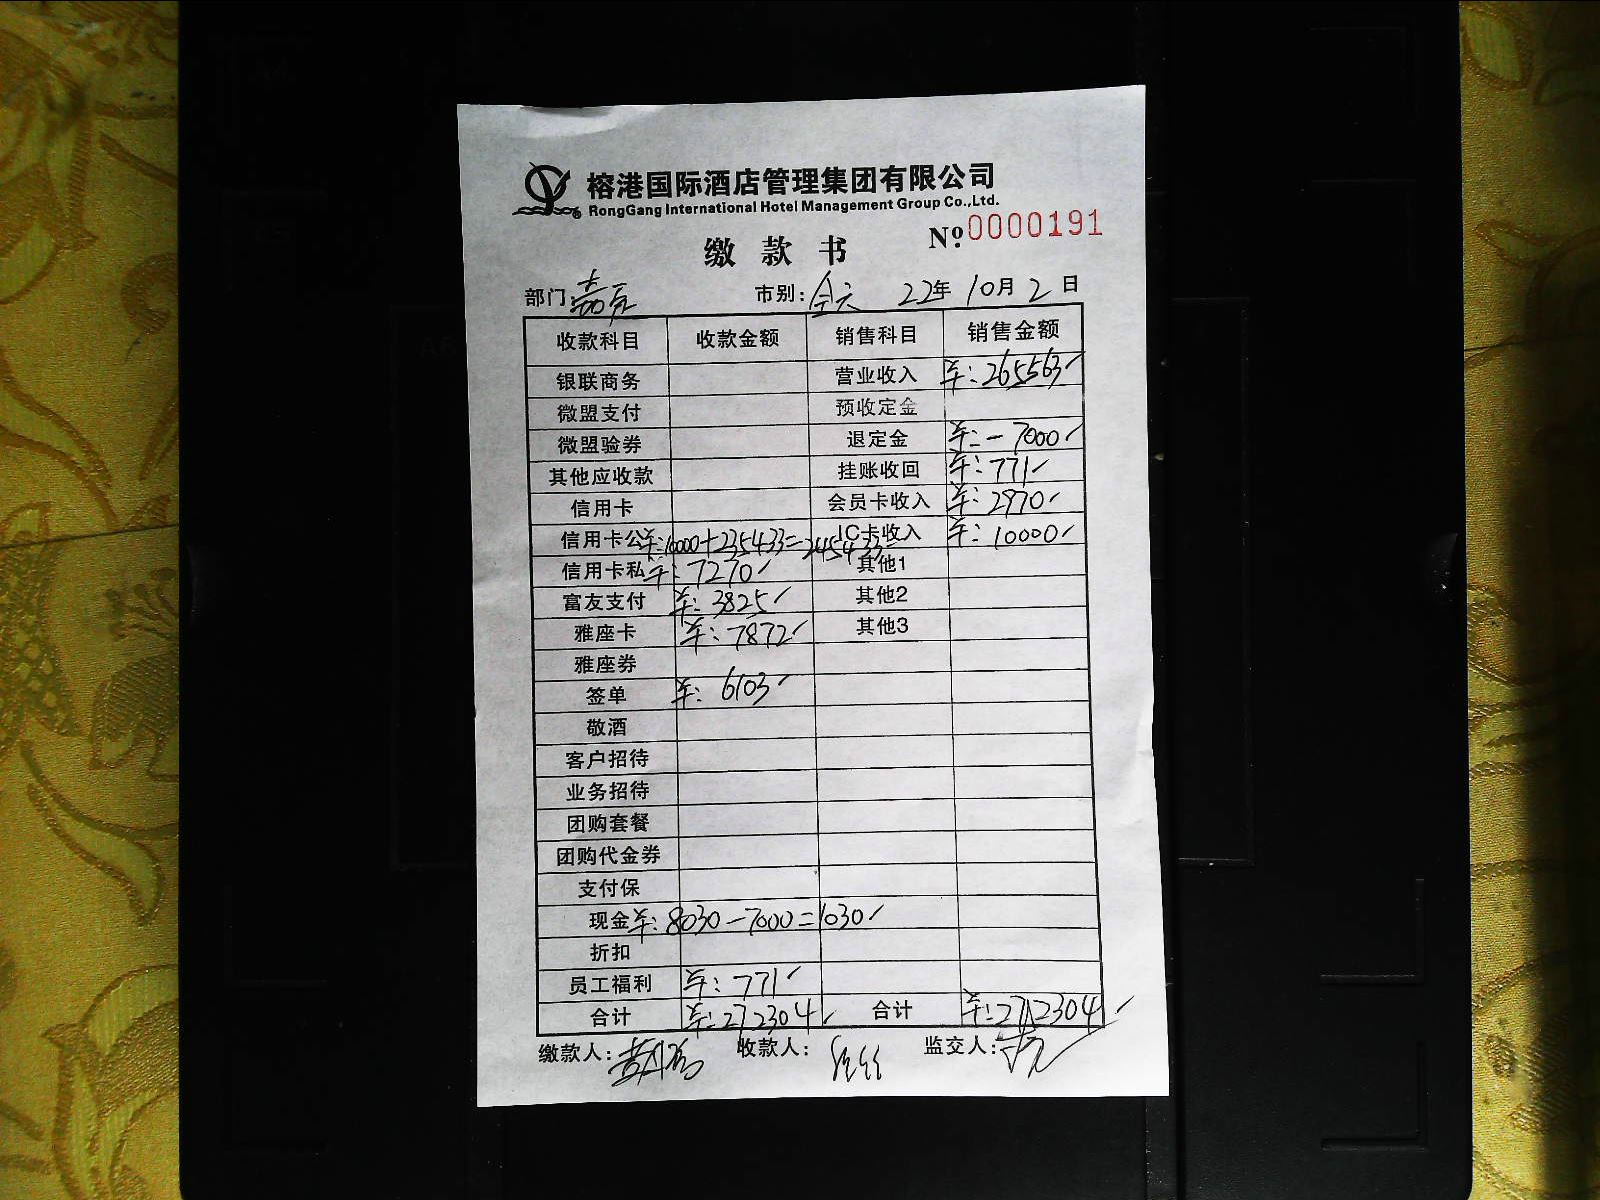 榕港国际酒店管理集团有限公司
RongGang International Hotel Management Group Co.,Ltd.
缴款书 №0000191
部门: 市别:全天 22年10月2日
收款科目 收款金额 销售科目 销售金额
银联商务 营业收入 卡:265563
微盟支付 预收定金
微盟验券 退定金 卡:-7000
其他应收款 挂账收回 卡:771
信用卡 会员卡收入 卡:2970
信用卡公 卡:10000+235433=245433 IC卡收入 卡:10000
信用卡私 卡:7270 其他1
富友支付 卡:3825 其他2
雅座卡 卡:7872 其他3
雅座券
签单 卡:6103
敬酒
客户招待
业务招待
团购套餐
团购代金券
支付保
现金 卡:8030-7000=1030
折扣
员工福利 卡:771
合计 卡:272304 合计 卡:272304
缴款人: 收款人: 监交人: